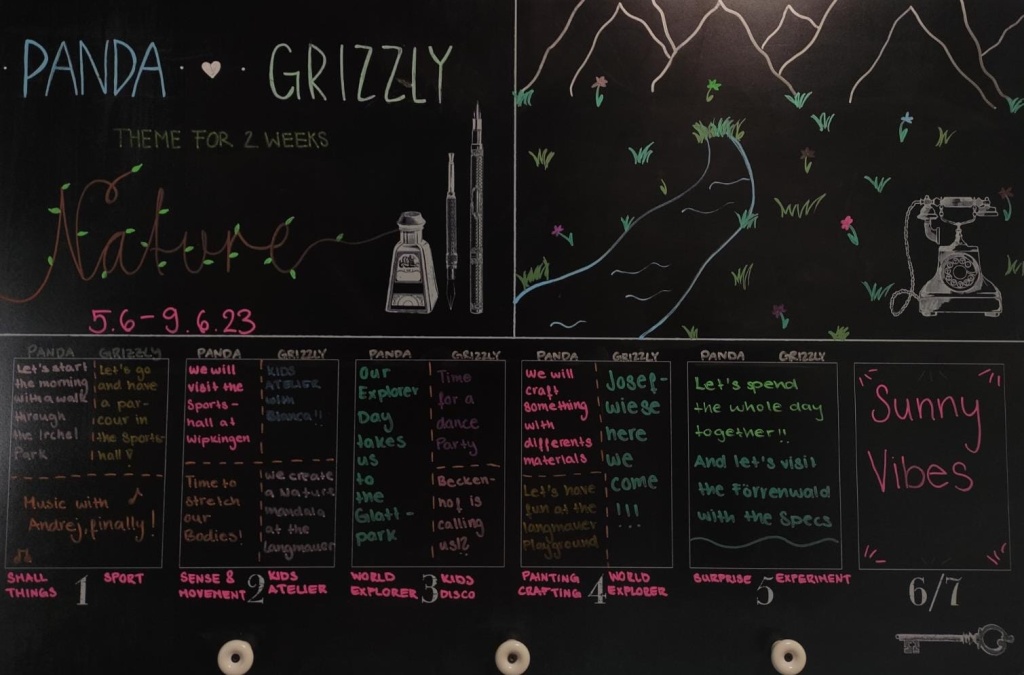 PANDA GRIZZLY
THEME FOR 2 WEEKS
Nature
5.6-9.6.23
PANDA GRIZZLY
Let's start
the morning
with a walk
through
the Irchel
Park
Let's go
and have
a par-
cour in
the Sports
hall!
Music with
Andrej, finally!
SMALL
THINGS
1
SPORT
PANDA GRIZZLY
We will
visit the
Sports-
hall at
Wipkingen
KIDS
ATELIER
with
Bianca!!
Time to
stretch
our
Bodies!
We create
a Nature
mandala
at the
Langmauer
SENSE &
MOVEMENT
2
KIDS
ATELIER
PANDA GRIZZLY
Our
Explorer
Day
takes
us
to
the
Glatt-
park
Time
for a
dance
Party
Becken-
hof is
calling
us!?
WORLD
EXPLORER
3
KIDS
DISCO
PANDA GRIZZLY
We will
craft
something
with
differents
materials
Let's have
fun at the
langmauer
Playground
Josef-
wiese
here
we
come
!!!
PAINTING
CRAFTING
4
WORLD
EXPLORER
PANDA GRIZZLY
Let's spend
the whole day
together!!
And let's visit
the Förrenwald
with the Specs
SURPRISE
5
EXPERIMENT
Sunny
Vibes
6/7